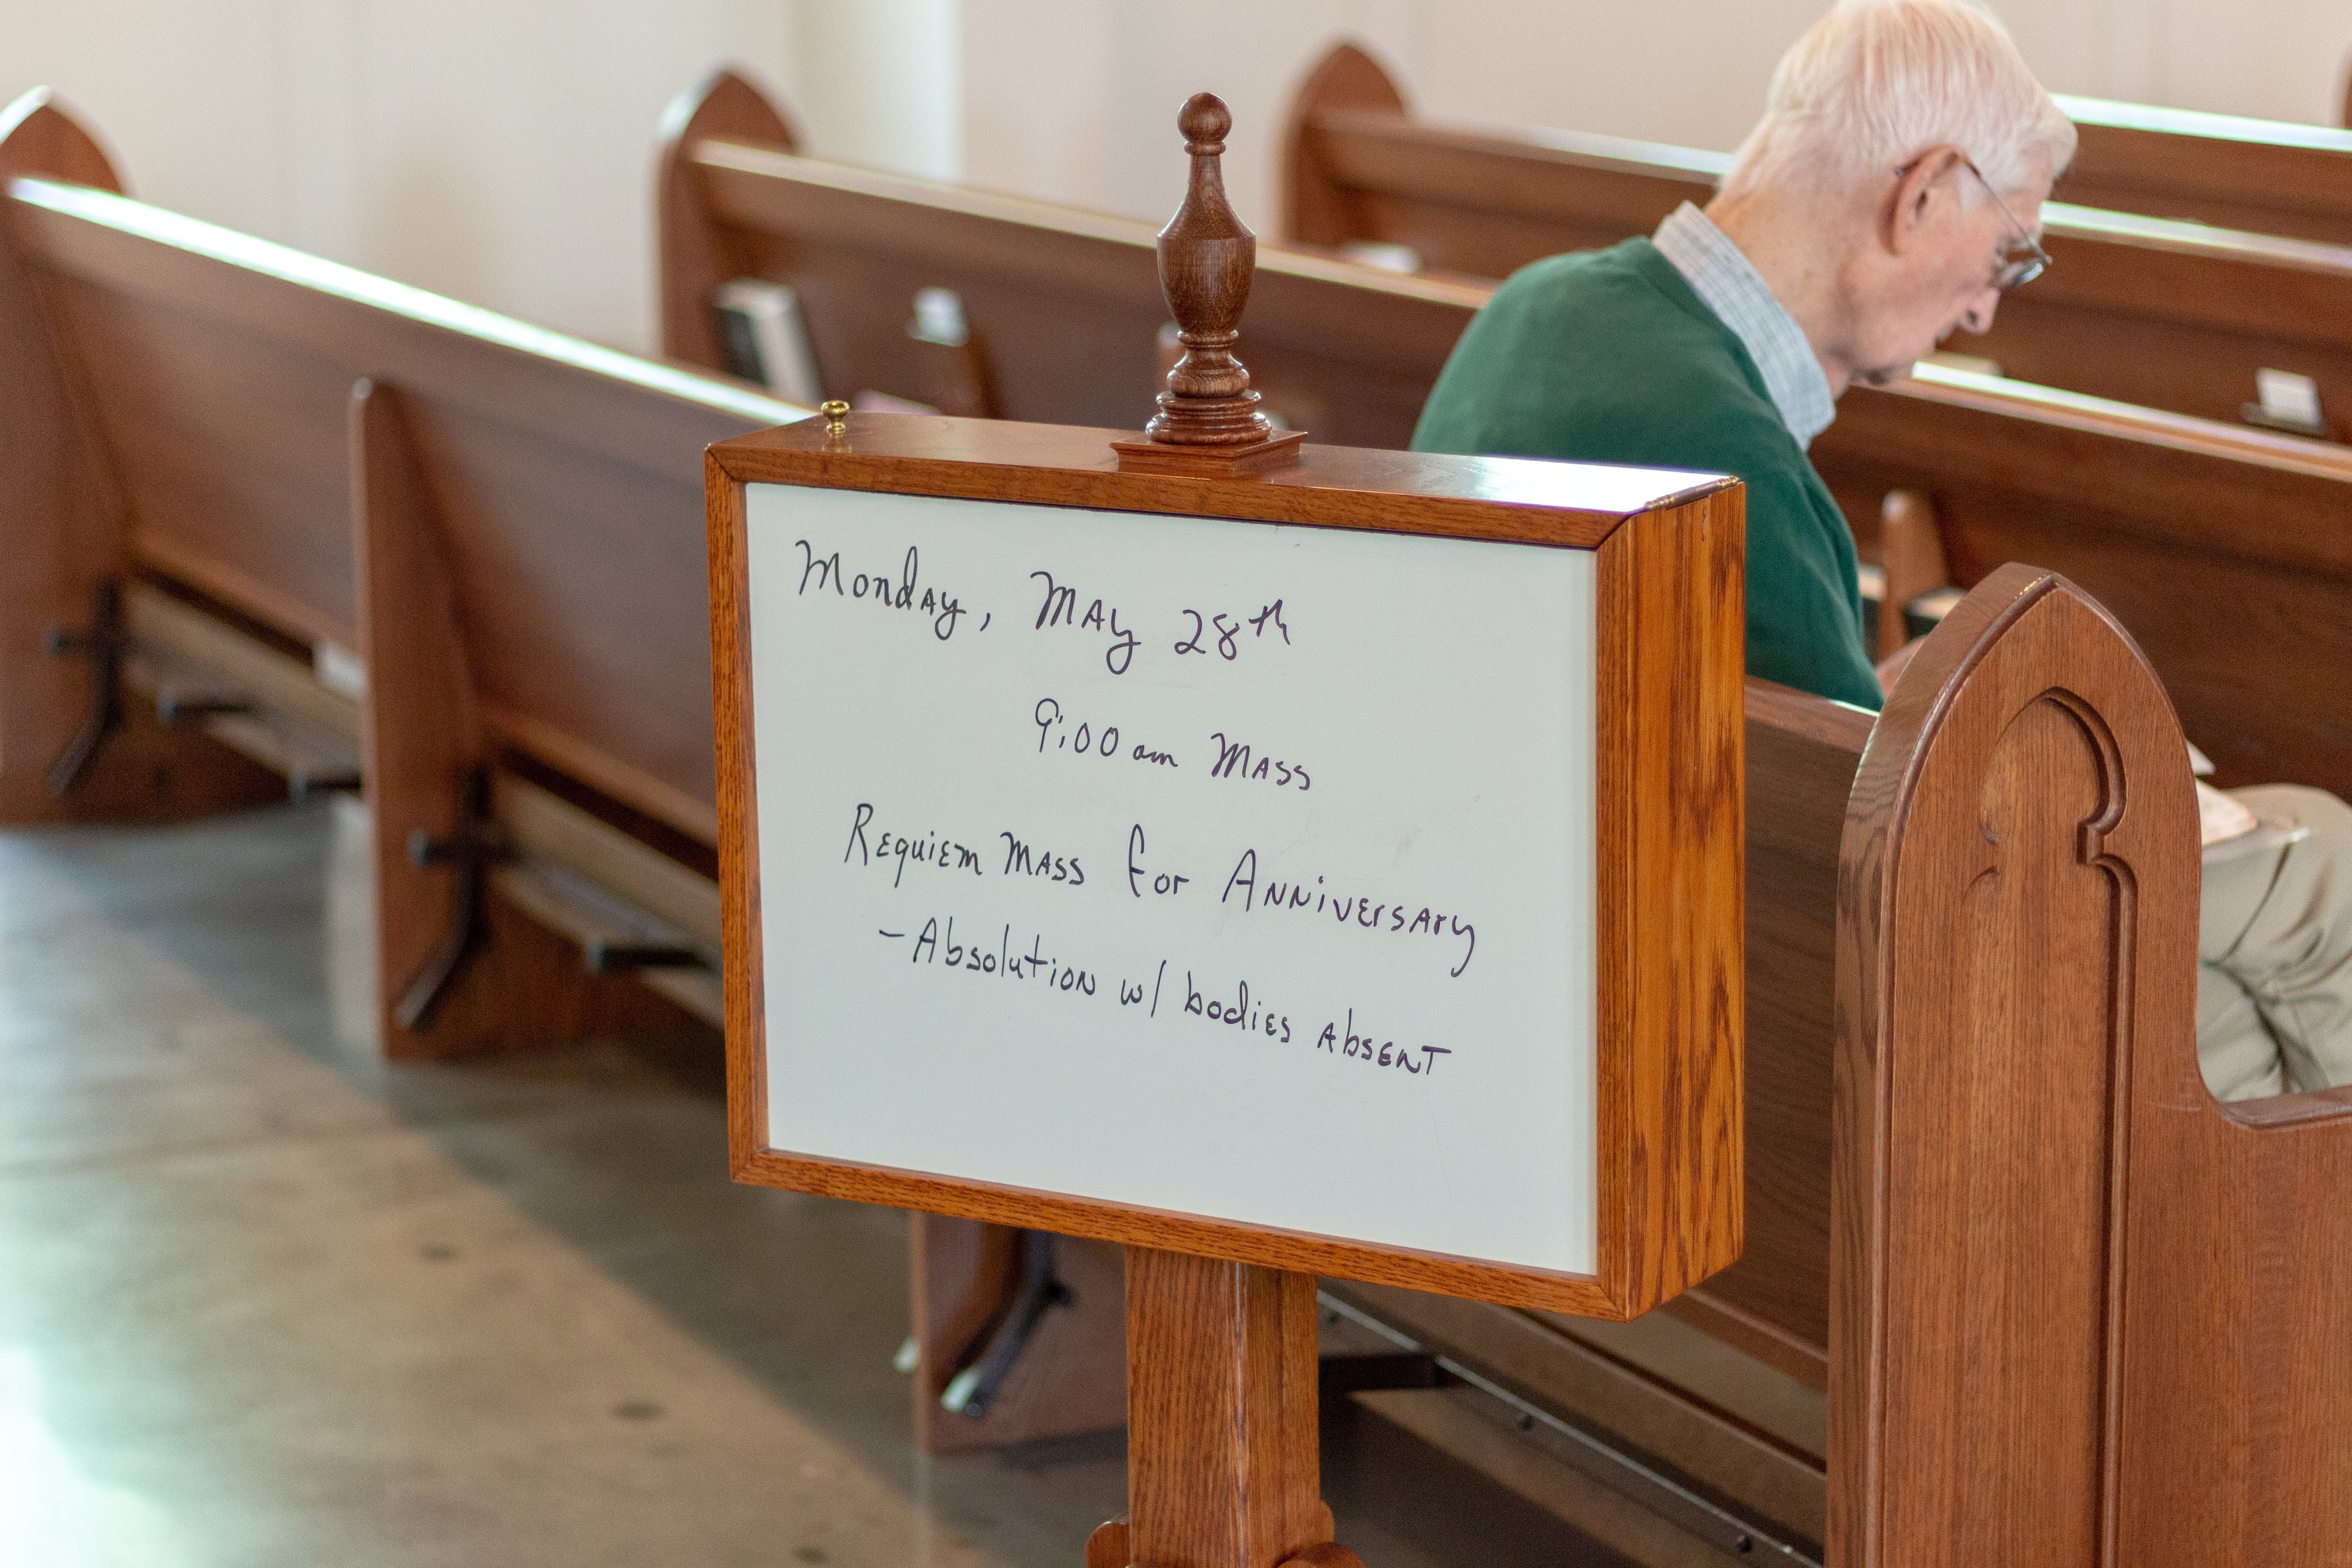 Monday, May 28th
9:00 am Mass
Requiem Mass for Anniversary
- Absolution w/ bodies absent